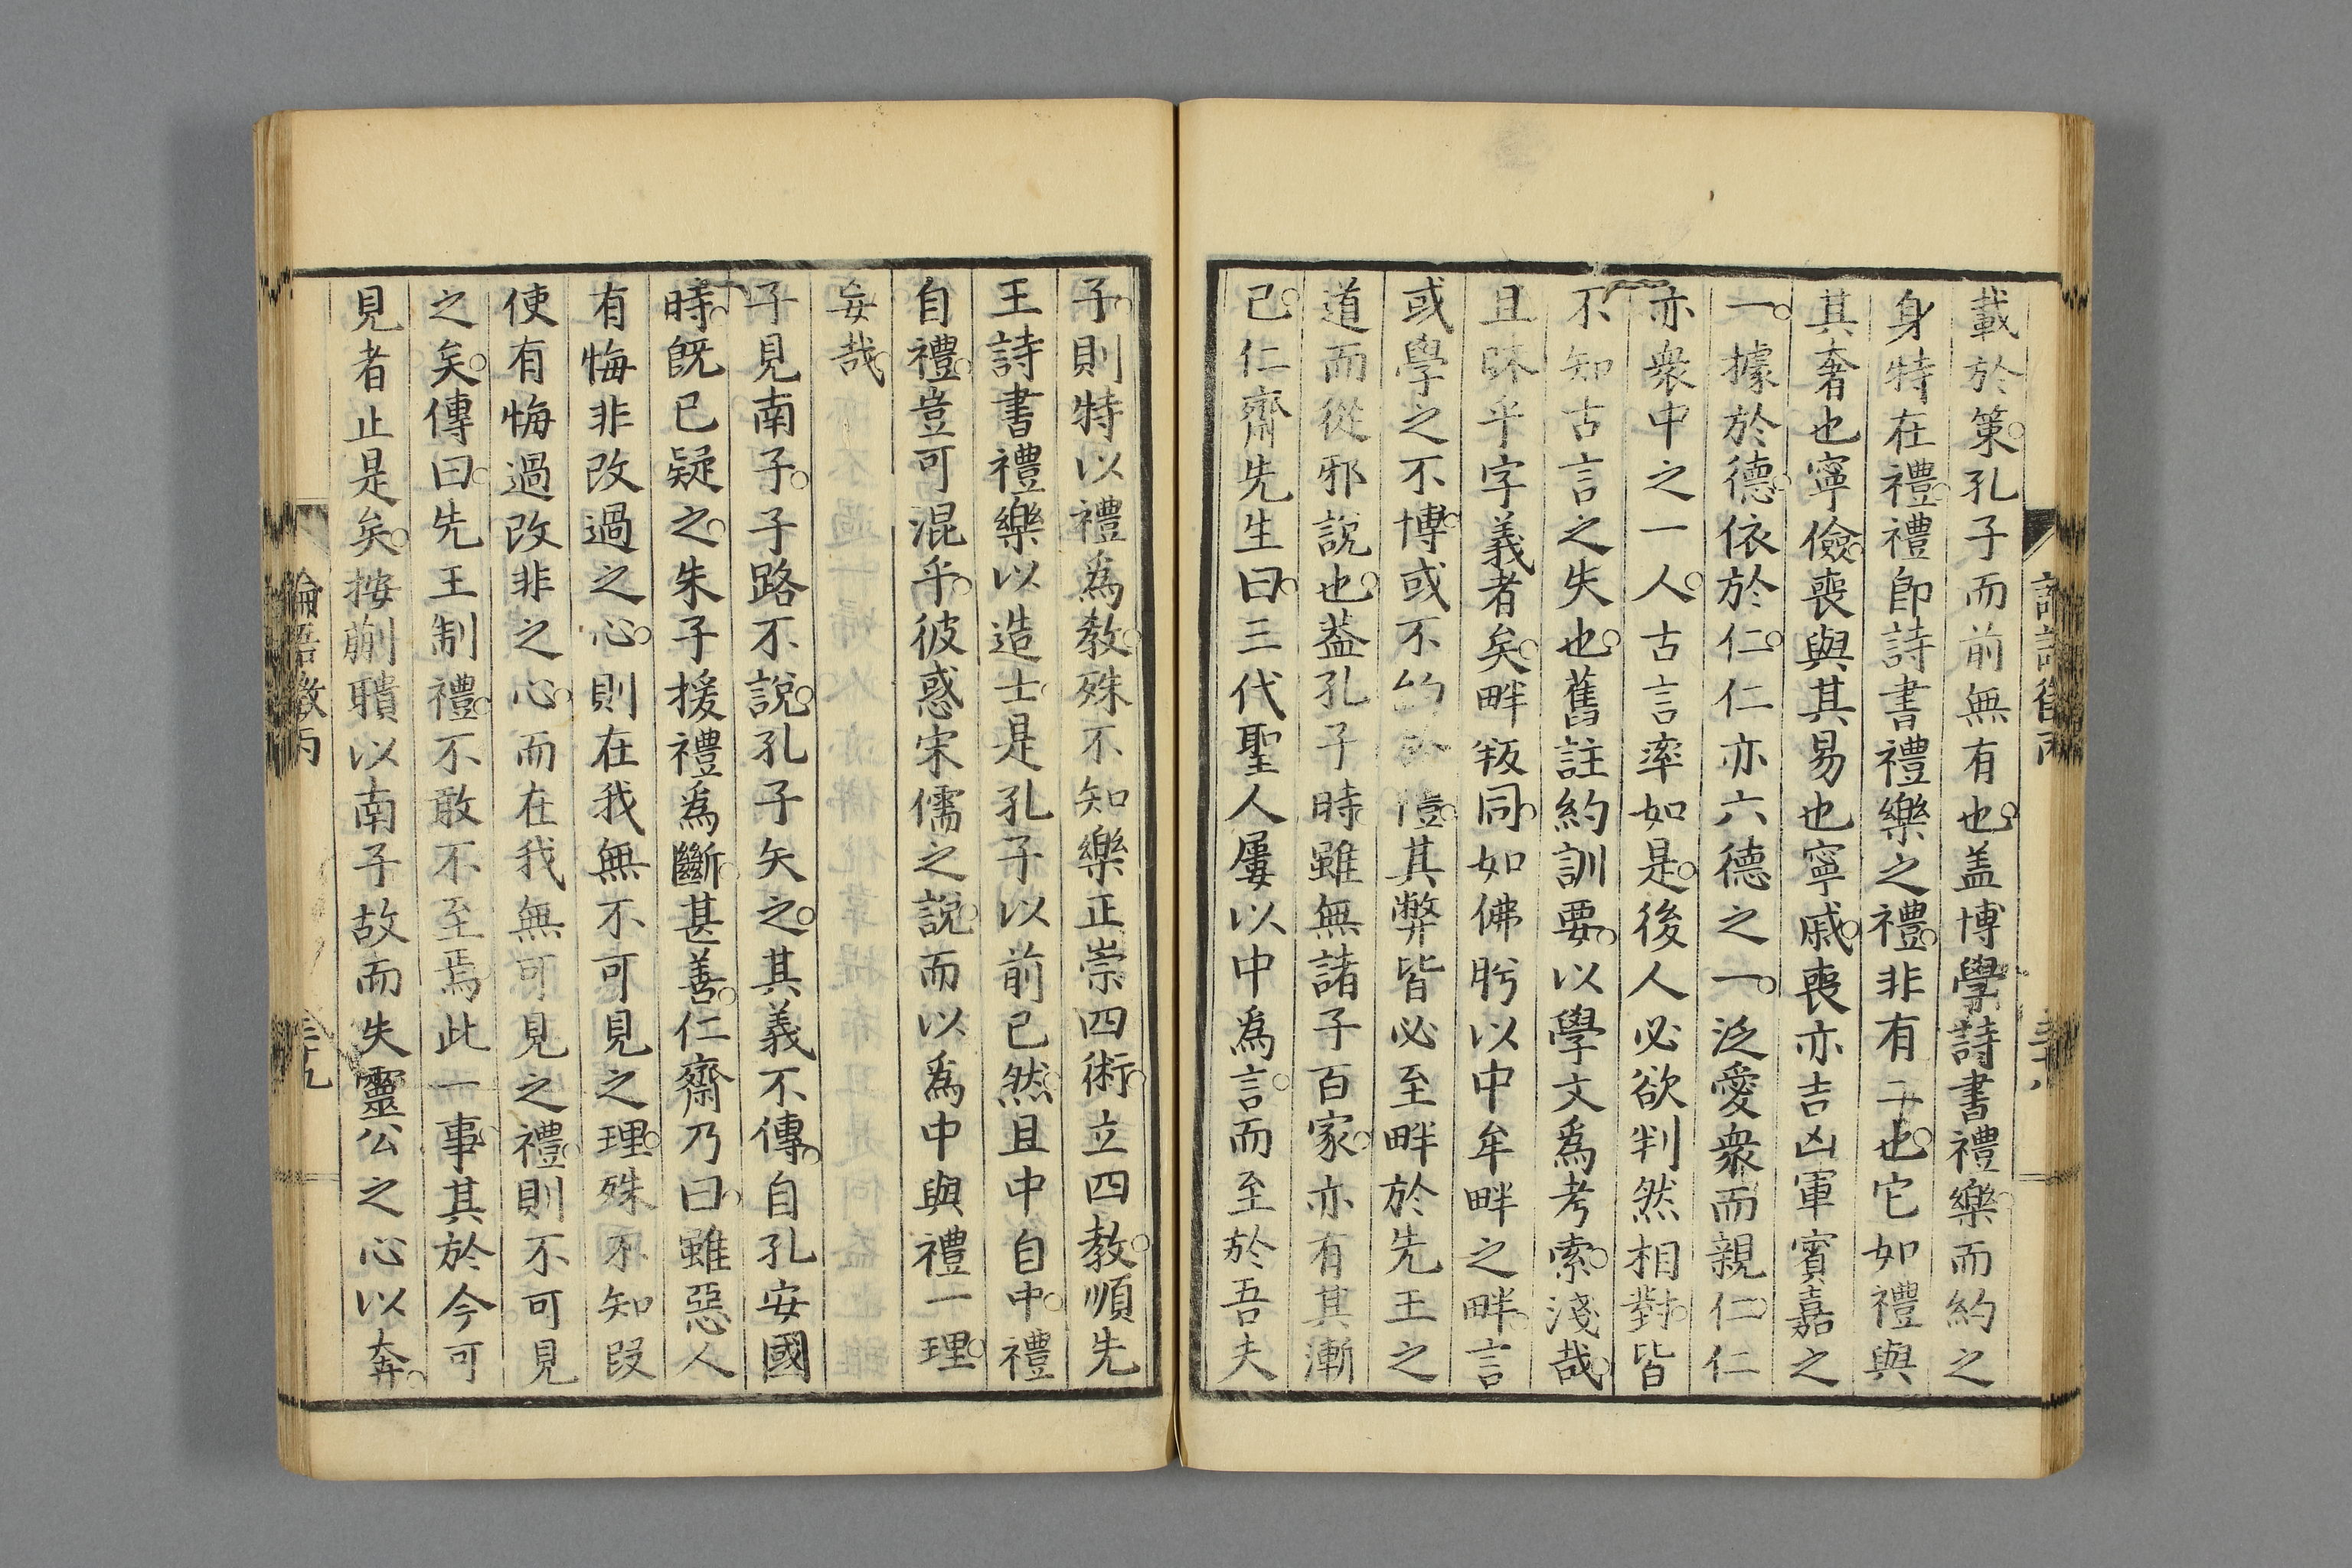 載於策孔子而前無有也盖博學詩書禮樂而約之
身特在禮禮卽詩書禮樂之禮非有二也它如禮與
其奢也寧儉喪與其易也寧戚喪亦吉凶軍賓嘉之
一據於德依於仁仁亦六德之一泛愛衆而親仁仁
亦衆中之一人古言率如是後人必欲判然相對皆
不知古言之失也舊註約訓要以學文爲考索淺哉
且昧乎字義者矣畔叛同如佛肸以中牟畔之畔言
或學之不博或不約於禮其弊皆必至畔於先王之
道而從邪說也葢孔子時雖無諸子百家亦有其漸
已仁齋先生曰三代聖人屢以中爲言而至於吾夫
子則特以禮爲教殊不知樂正崇四術立四教順先
王詩書禮樂以造士是孔子以前已然且中自中禮
自禮豈可混乎彼惑宋儒之說而以爲中與禮一理
妄哉
子見南子子路不說孔子矢之其義不傳自孔安國
時旣已疑之朱子援禮爲斷甚善仁齋乃曰雖惡人
有悔非改過之心則在我無不可見之理殊不知叚
使有悔過改非之心而在我無可見之禮則不可見
之矣傳曰先王制禮不敢不至焉此一事其於今可
見者止是矣按蒯聵以南子故而失靈公之心以奔
論語徵丙
三十九